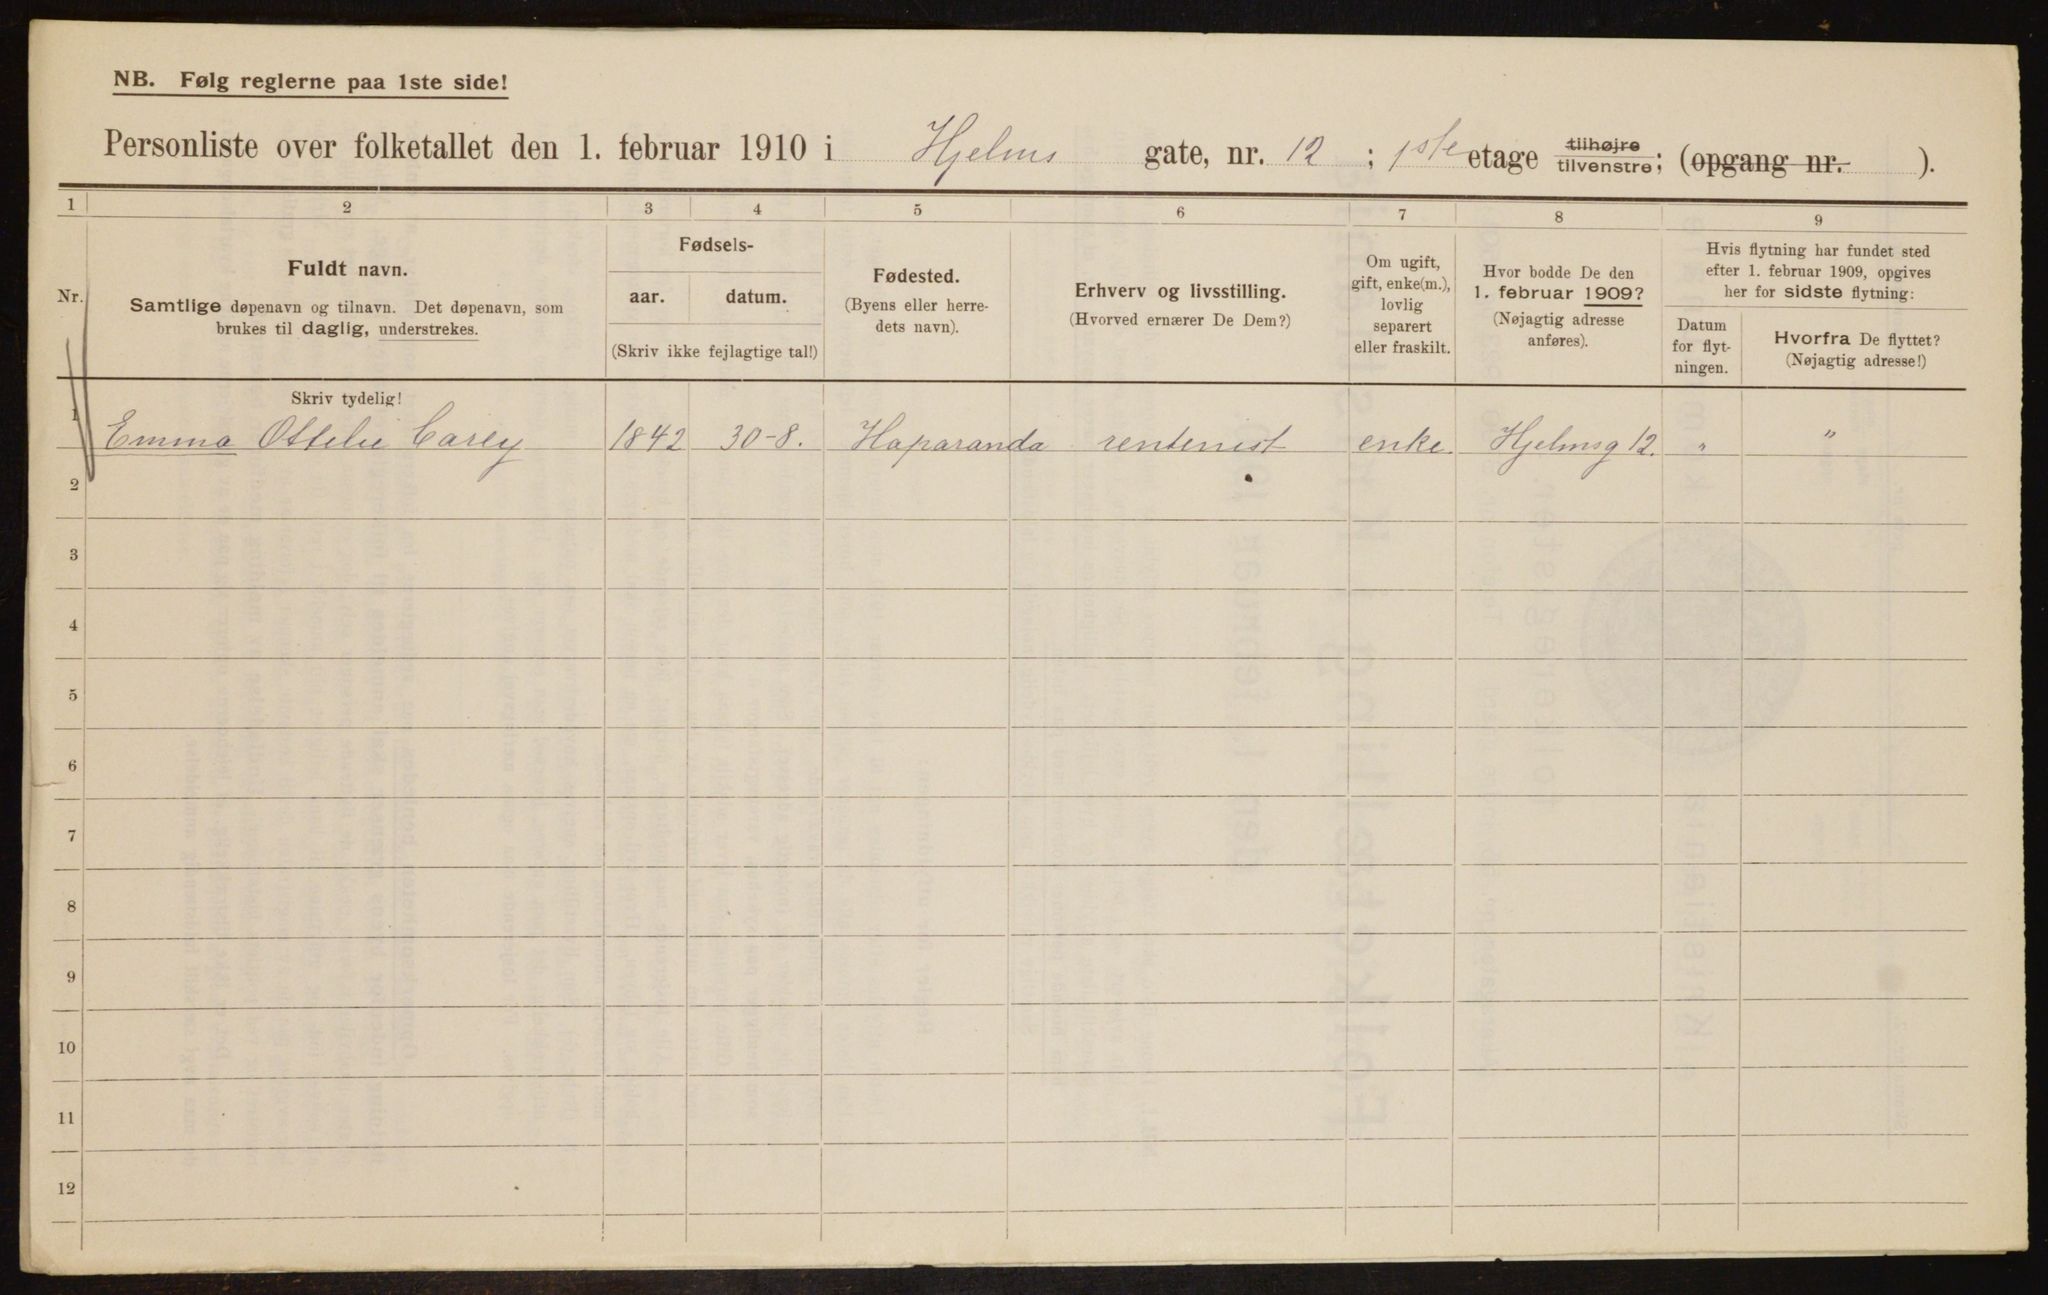 NB. Følg reglerne paa 1ste side!
Personliste over folketallet den 1. februar 1910 i Hjelms gate, nr. 12 ; 1ste etage tilhøjre tilvenstre; (opgang nr. ).
1 2 3 4 5 6 7 8 9
Nr.
Fuldt navn.
Samtlige døpenavn og tilnavn. Det døpenavn, som
brukes til daglig, understrekes.
Fødsels-
aar. datum.
(Skriv ikke fejlagtige tal!)
Fødested.
(Byens eller herre-
dets navn).
Erhverv og livsstilling.
(Hvorved ernærer De Dem?)
Om ugift,
gift, enke(m.),
lovlig
separert
eller fraskilt.
Hvor bodde De den
1. februar 1909?
(Nøjagtig adresse
anføres).
Hvis flytning har fundet sted
efter 1. februar 1909, opgives
her for sidste flytning:
Datum
for flyt-
ningen.
Hvorfra De flyttet?
(Nøjagtig adresse!)
Skriv tydelig!
1 Emma Ottelie Carey 1842 30-8. Haparanda rentenist enke. Hjelmsg 12. " "
2
3
4
5
6
7
8
9
10
11
12